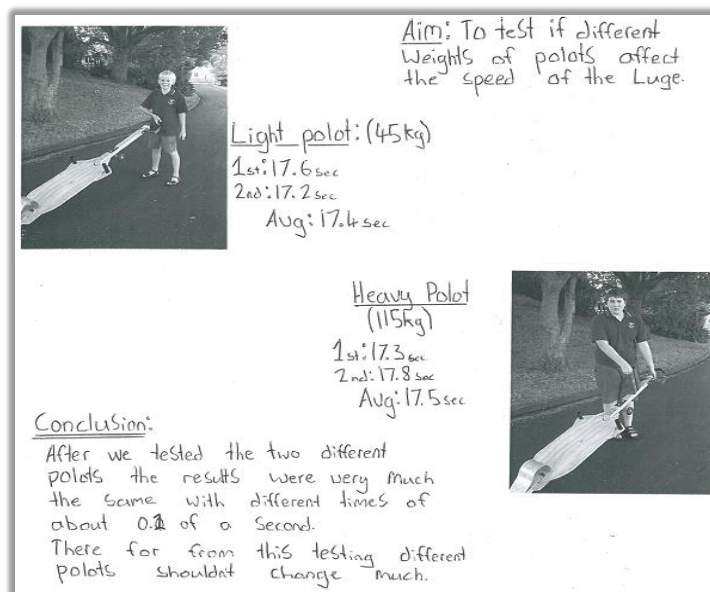 Aim: To test if different
weights of polots affect
the speed of the Luge.
Light polot: (45kg)
1st: 17.6 sec
2nd: 17.2 sec
Avg: 17.4 sec
Heavy Polot
(115kg)
1st: 17.3 sec
2nd: 17.8 sec
Avg: 17.5 sec
Conclusion:
After we tested the two different
polots the results were very much
the same with different times of
about 0.1 of a second.
There for from this testing different
polots shouldn't change much.